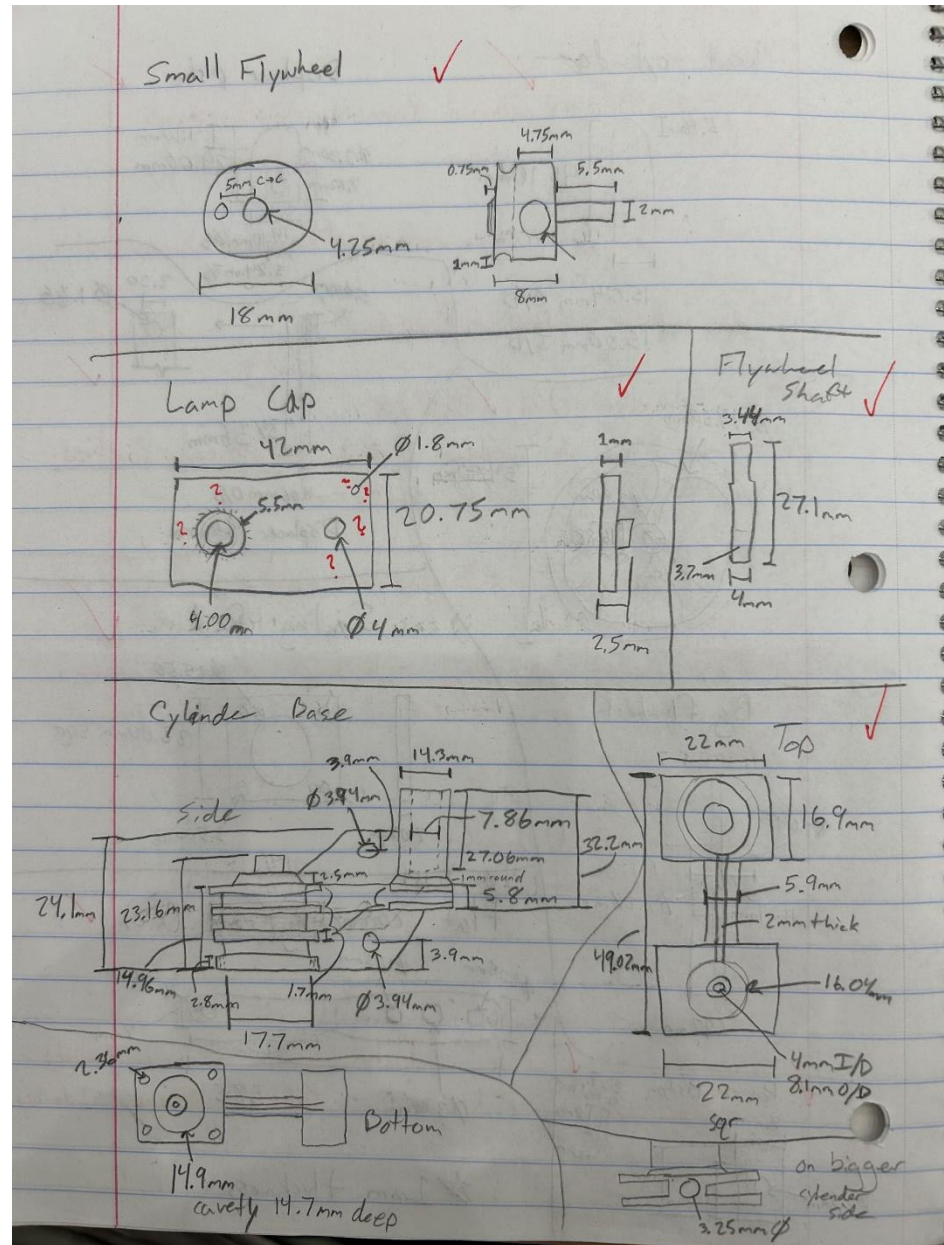 Small Flywheel
5mm C→C
4.25mm
18mm
0.75mm
4.75mm
5.5mm
2mm
1mm
8mm
Lamp Cap
42mm
Ø1.8mm
?
?
?
?
?
?
5.5mm
20.75mm
4.00mm
Ø4mm
1mm
2.5mm
Flywheel
Shaft
3.44mm
27.1mm
3.7mm
4mm
Cylinde Base
Side
3.9mm
14.3mm
Ø3.94mm
7.86mm
27.06mm
32.2mm
1mm round
5.8mm
2.5mm
24.1mm
23.16mm
14.96mm
2.8mm
1.7mm
3.9mm
Ø3.94mm
17.7mm
Top
22mm
16.9mm
5.9mm
2mm thick
49.02mm
16.04mm
4mm I/D
8.1mm O/D
22mm
sqr
2.36mm
Bottom
14.9mm
cavety 14.7mm deep
on bigger
cylender
side
3.25mm Ø